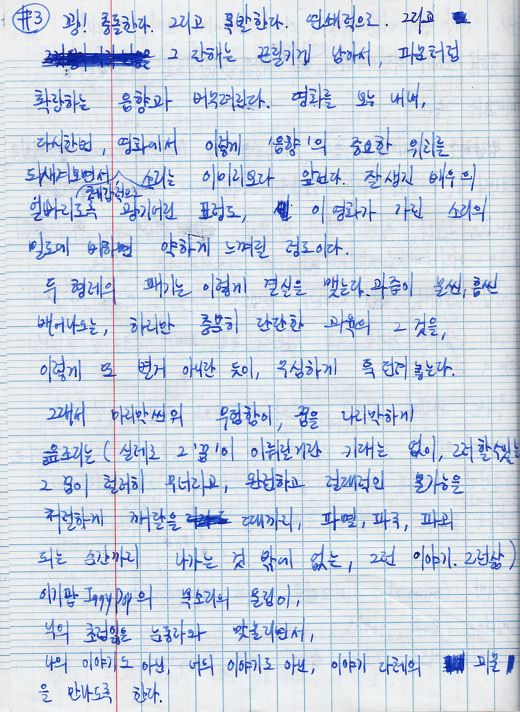 #3 쾅! 충돌한다. 그리고 폭발한다. 연쇄적으로. 그리고
그 잔해는 끈질기게 남아서, 파도처럼
확장하는 음향과 버무려진다. 영화를 보는 내내,
다시한번, 영화에서 이렇게 '음향'의 중요한 위치를
되새겨보면서 소리는 이미지보다 앞선다. 잘생긴 배우의
광기어린 표정도, 이 영화가 가진 소리의
밀도에 비하면 약하게 느껴질 정도이다.
두 형제의 패기는 이렇게 결실을 맺는다. 과즙이 물씬, 흠씬
배어나오는, 하지만 충분히 단단한 과육의 그것을,
이렇게 또 별거 아니란 듯이, 무심하게 툭 던져 놓는다.
그래서 마지막씬의 무덤함이, 꿈을 나지막하게
읊조리는 (실제로 그 '꿈'이 이뤄질거란 기대는 없이, 그저 할 수 있는
그 꿈이 철저히 무너지고, 완전하고 절대적인 불가능을
처절하게 깨달을 때까지, 파멸, 파국, 파괴
되는 순간까지 나가는 것 밖에 없는, 그런 이야기. 그런 삶)
이기팝 Iggy Pop의 목소리의 울림이,
닉의 초점잃은 눈동자와 맞물리면서,
나의 이야기도 아닌, 너의 이야기도 아닌, 이야기 자체의 괴물
을 만나도록 한다.